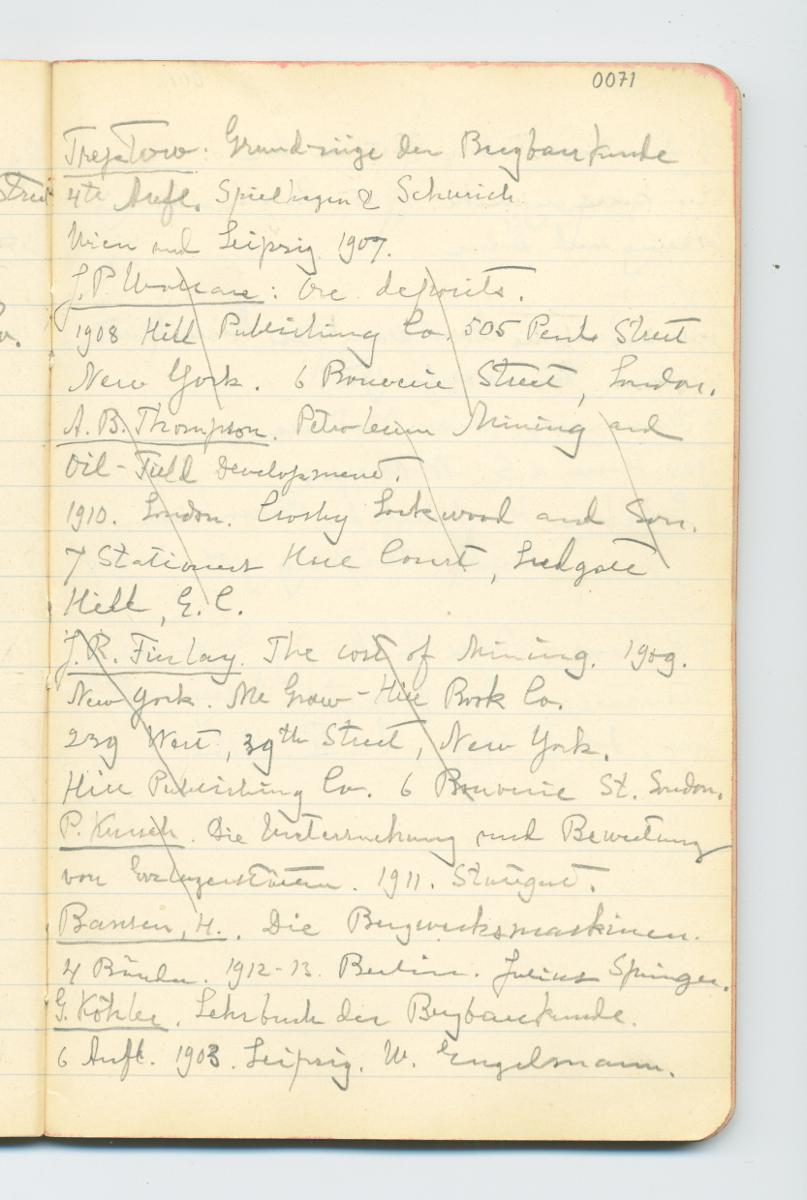 0071
Treptow: Grundzüge der Bergbaukunde
4te Aufl. Spielhagen & Schurich
Wien und Leipzig 1907.
J. P. Wallace: Ore deposits.
1908 Hill Publishing Co. 505 Pearl Street
New York. 6 Bouverie Street, London.
A. B. Thompson. Petroleum Mining and
Oil-Field Development.
1910. London. Crosby Lockwood and Son.
7 Stationers Hall Court, Ludgate
Hill, E. C.
J. R. Finlay. The cost of Mining. 1909.
New York. Mc Graw-Hill Book Co.
239 West, 39th Street, New York.
Hill Publishing Co. 6 Bouverie St. London.
P. Krusch. Die Untersuchung und Bewertung
von Erzlagerstätten. 1911. Stuttgart.
Bansen, H.. Die Bergwerksmaskinen.
4 Bände. 1912-13. Berlin. Julius Springer.
G. Köhler. Lehrbuch der Bergbaukunde.
6 Aufl. 1903. Leipzig. W. Engelmann.